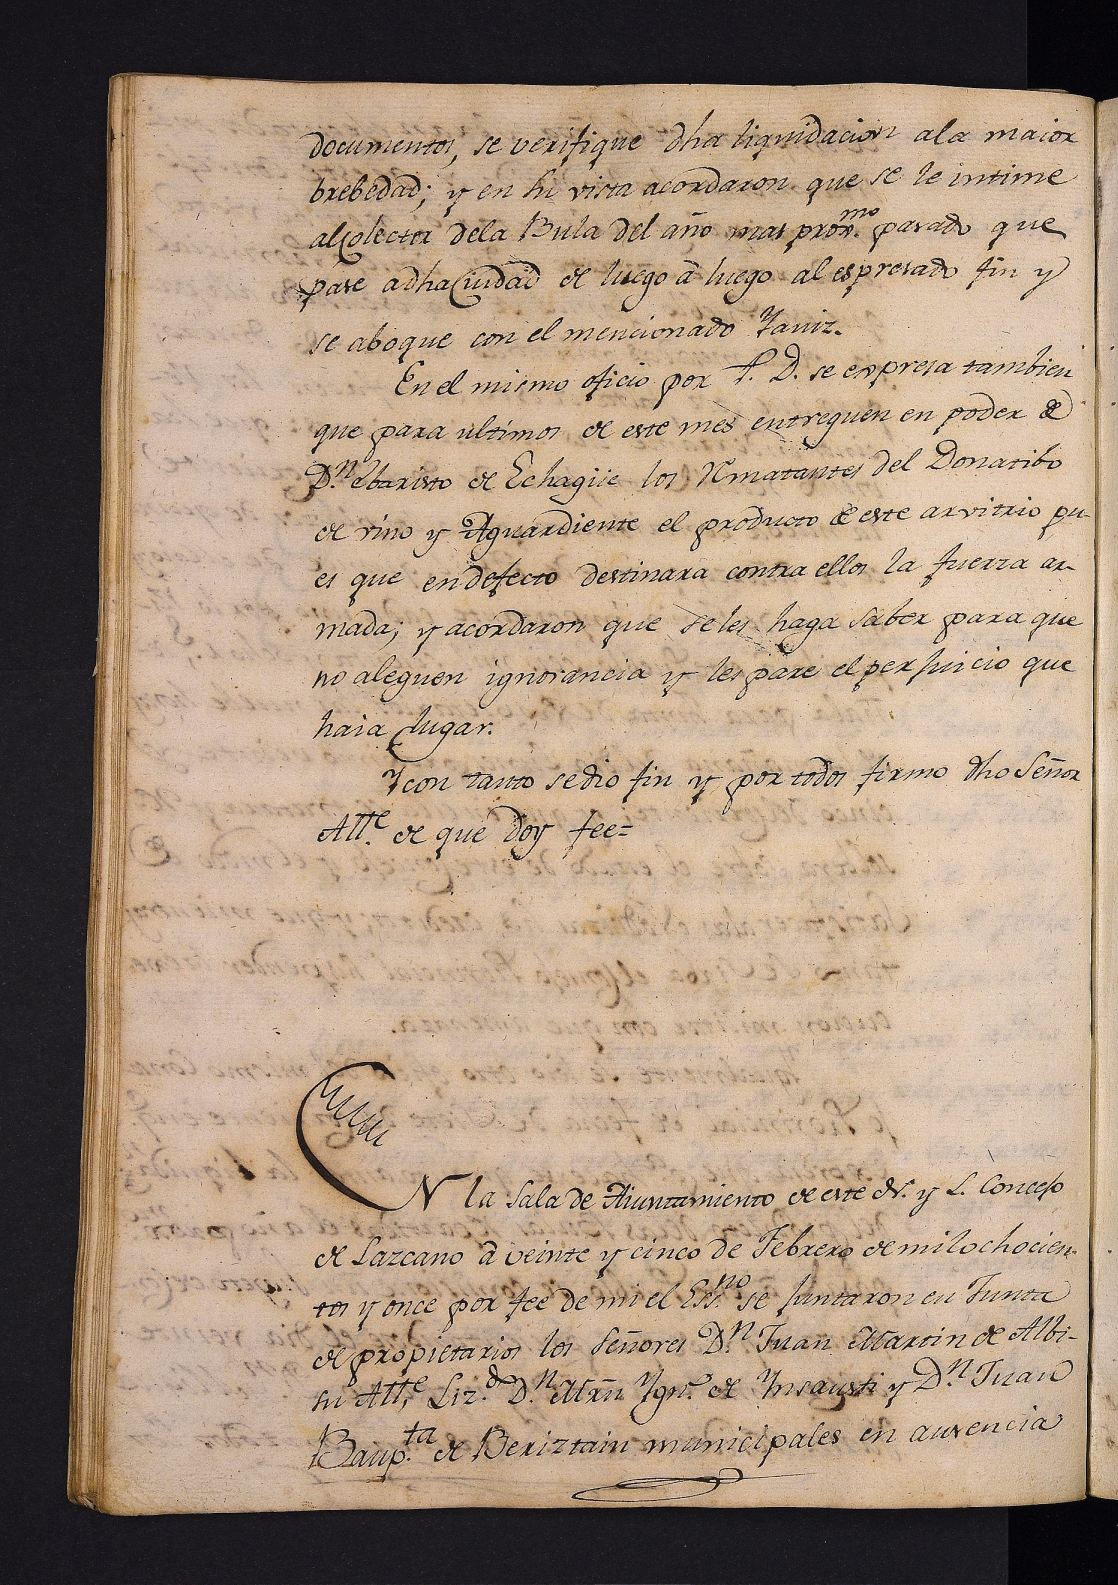 documentos, se verifique dha liquidacion ala maior
brebedad; y en su vista acordaron que se le intime
al Colector dela Bula del año mas prox.mo pasado que
pase adha Ciudad de luego á luego al espresado fin y
se aboque con el mencionado Yaniz.
En el mismo oficio por P. D. se expresa tambien
que para ultimos de este mes entreguen en poder de
D.n Ebaristo de Echagüe los Rmatantes del Donatibo
de vino y Aguardiente el producto de este arvitrio pu-
es que en defecto destinara contra ellos la fuerza ar-
mada; y acordaron que se les haga saber para que
no aleguen ignorancia y les pare el perjuicio que
haia lugar.
Y con tanto se dio fin y por todos firmo dho Señor
Alle. de que doy fee=
EN la Sala de Aiuntamiento de este N. y L. Concejo
de Lazcano á veinte y cinco de Febrero de mil ochocien-
tos y once por fee de mi el Ess.no se juntaron en Junta
de propietarios los Señores D.n Juan Martin de Albi-
su Alle, Liz.do D.n Mrn Ygn.o de Ynsausti y D.n Juan
Baup.ta de Beriztain municipales en ausencia